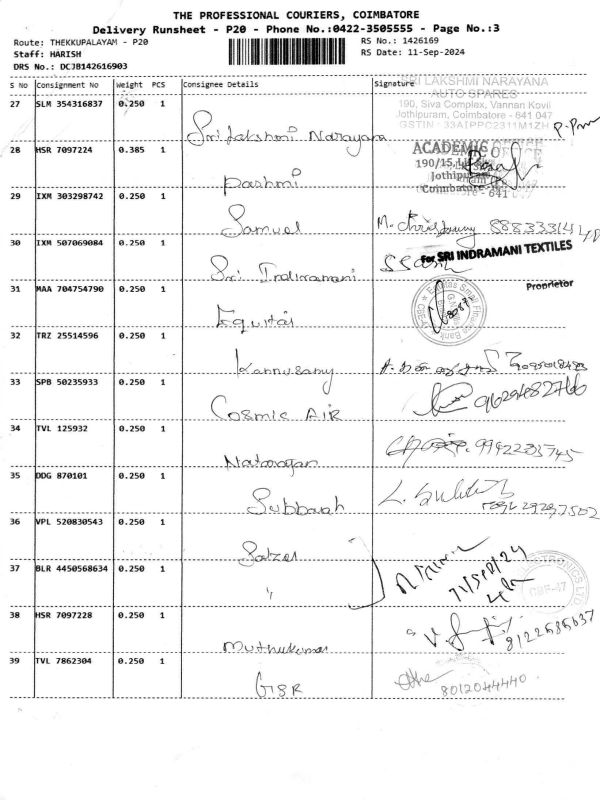 THE PROFESSIONAL COURIERS, COIMBATORE
Delivery Runsheet - P20 - Phone No.:0422-3505555 - Page No.:3
Route: THEKKUPALAYAM - P20
RS No.: 1426169
Staff: HARISH
RS Date: 11-Sep-2024
DRS No.: DCJB142616903
S No Consignment No Weight PCS Consignee Details Signature
SRI LAKSHMI NARAYANA
AUTO SPARES
190, Siva Complex, Vannan Kovil
Jothipuram, Coimbatore - 641 047
GSTIN : 33AIPPC2311M1ZH
27 SLM 354316837 0.250 1 Sri Lakshmi Narayana
28 HSR 7097224 0.385 1 Rashmi
ACADEMIC OFFICE
190/15,
Jothipuram
Coimbatore - 641
29 IXM 303298742 0.250 1 Samuel
30 IXM 507069084 0.250 1 Sri Indiramani
for SRI INDRAMANI TEXTILES
Proprietor
31 MAA 704754790 0.250 1 Equitas
Equitas Small Finance Bank
32 TRZ 25514596 0.250 1 Kannusamy
33 SPB 50235933 0.250 1 Cosmic AIR
9629482766
34 TVL 125932 0.250 1 Natarajan
9942235745
35 DDG 870101 0.250 1 Subbaiah
36 VPL 520830543 0.250 1
37 BLR 4450568634 0.250 1 "
CBE-47
38 HSR 7097228 0.250 1 Muthukumar
8122585637
39 TVL 7862304 0.250 1 GISR
8012044440